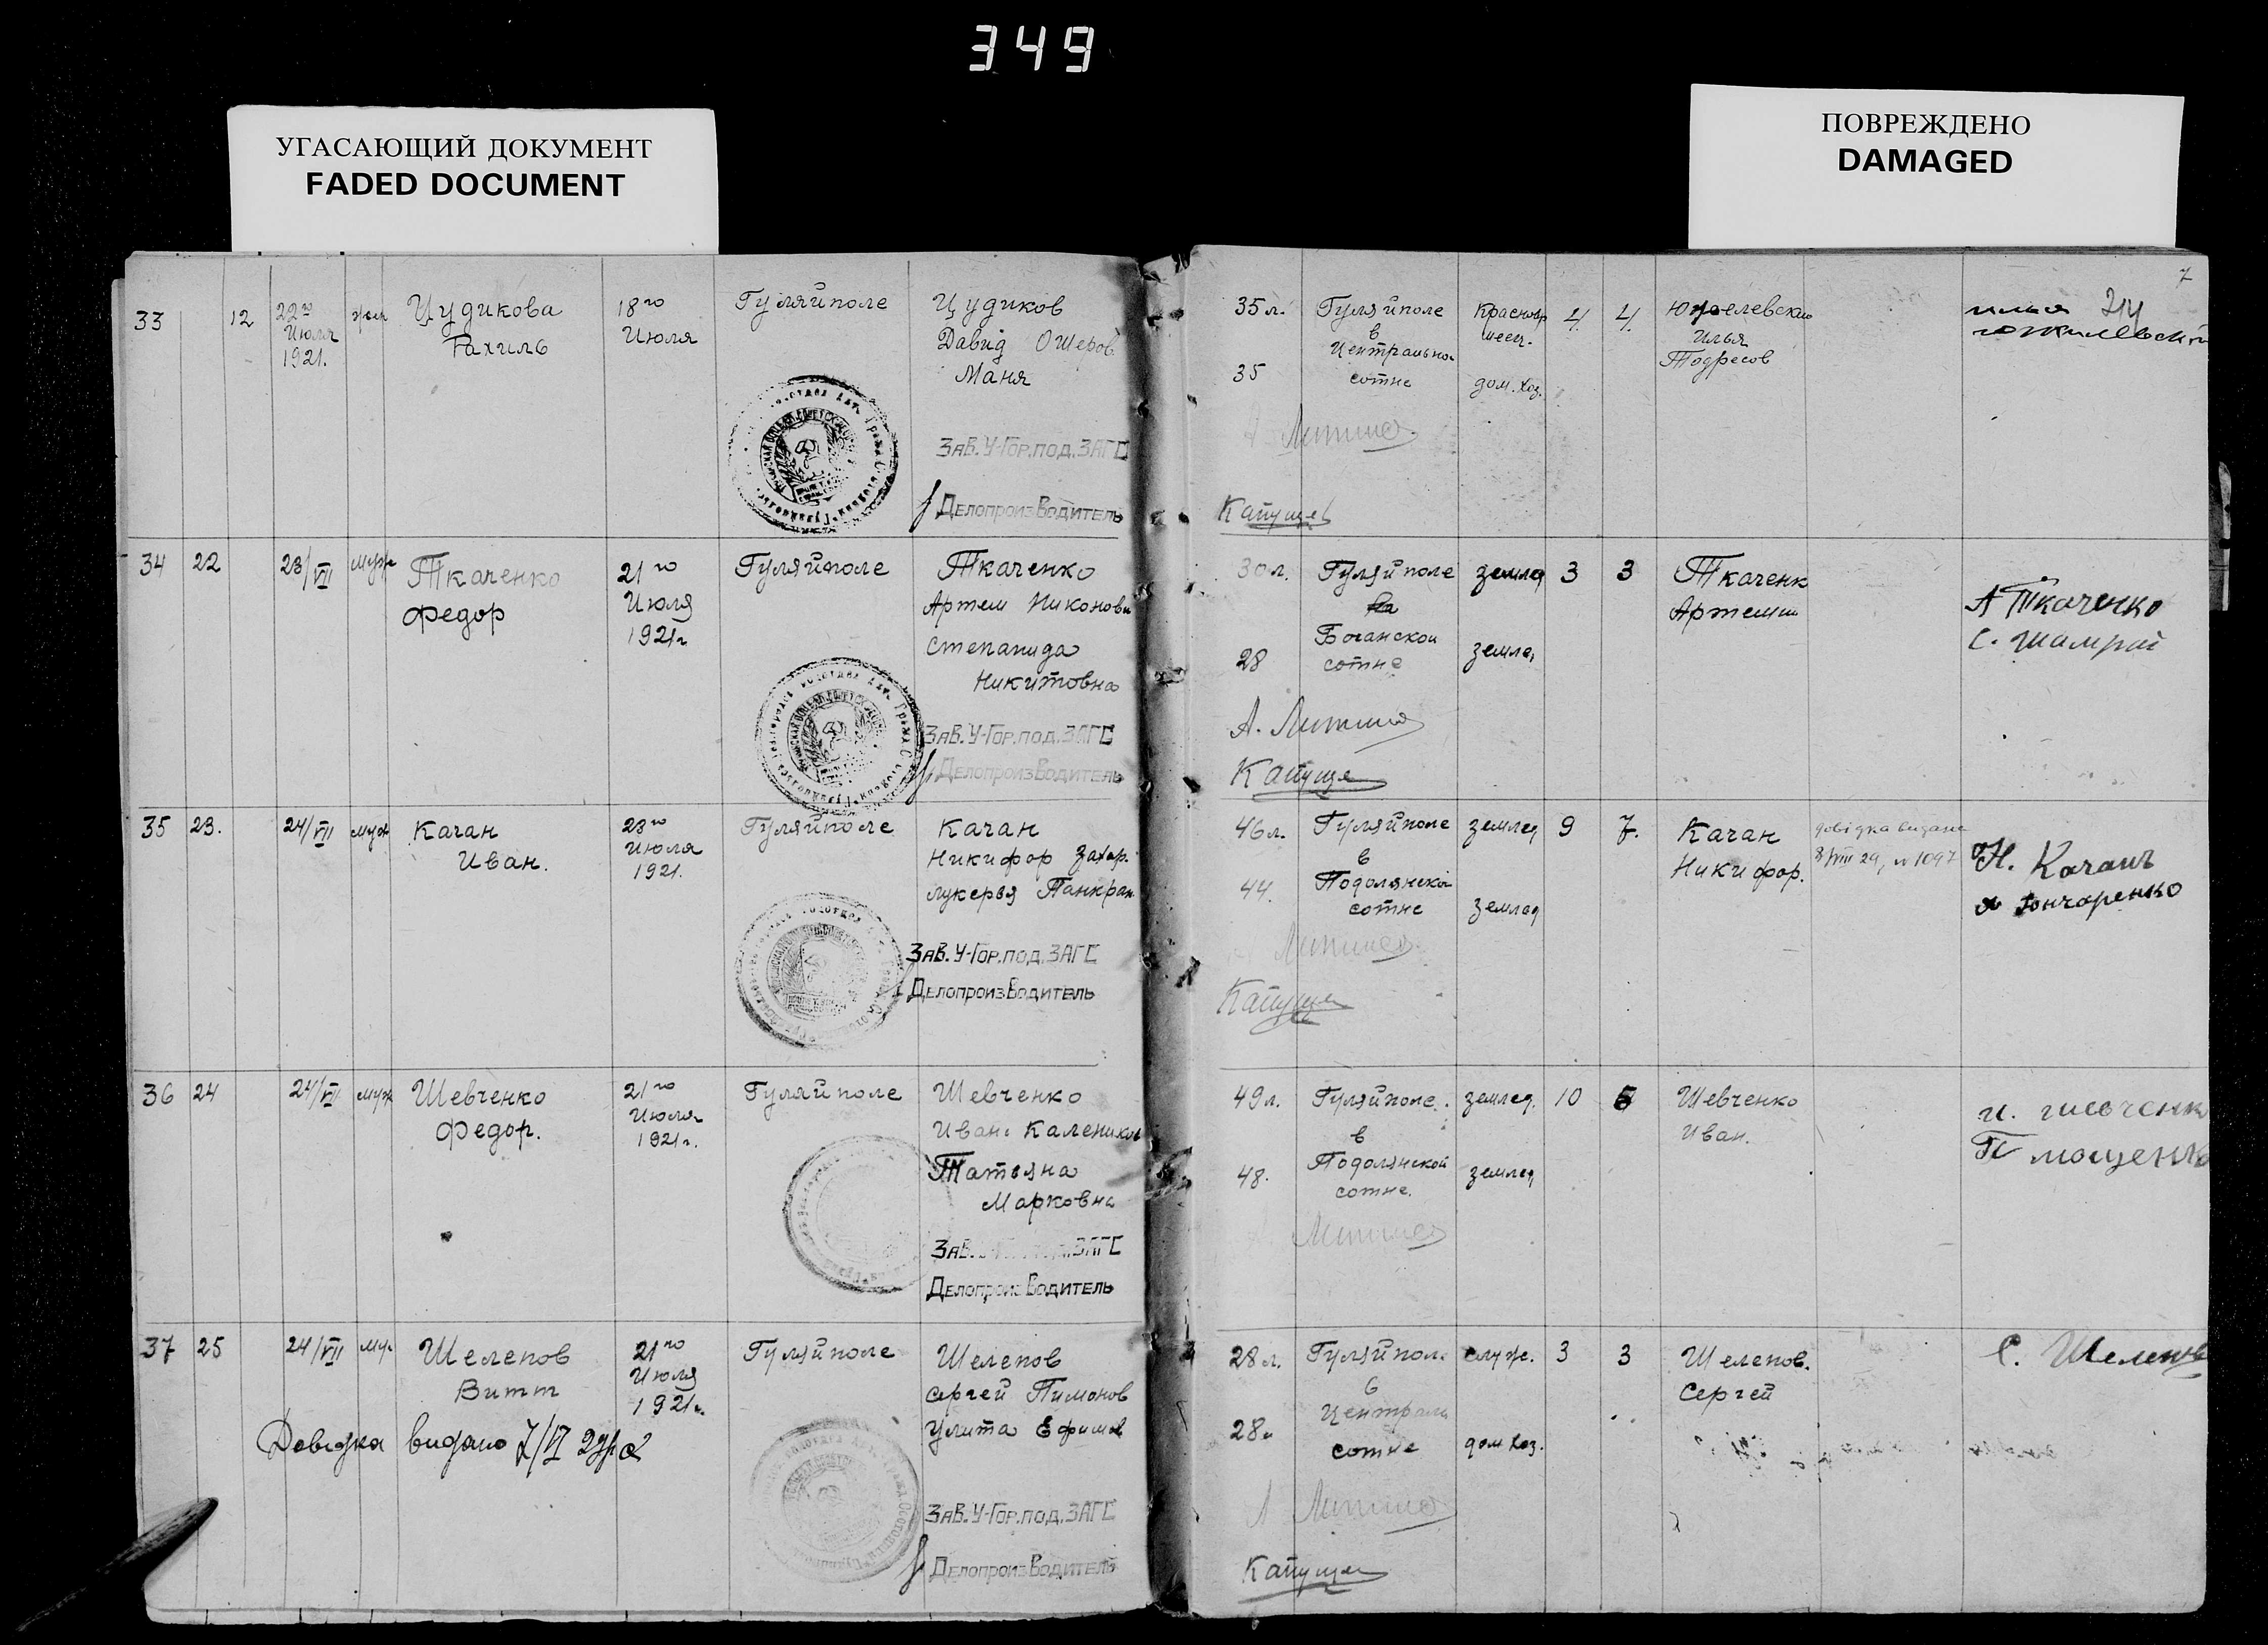 349
УГАСАЮЩИЙ ДОКУМЕНТ
FADED DOCUMENT
ПОВРЕЖДЕНО
DAMAGED
7
33
12
22го
Июля
1921.
жен
Цудикова
Рахиль
18го
Июля
Гуляйполе
Цудиков
Давид Ошеров.
Маня
ЗАВ. У-ГОР.ПОД. ЗАГС
ДЕЛОПРОИЗВОДИТЕЛЬ
35 л.
35
Гуляйполе
в
Центрально
сотне
дом. хоз.
4.
4.
Илья
Тодресов
34
22
23/VII
муж
Ткаченко
Федор
21го
Июля
1921г.
Гуляйполе
Ткаченко
Артем Никонови
Степанида
Никитовна
ЗАВ. У-ГОР.ПОД. ЗАГС
ДЕЛОПРОИЗВОДИТЕЛЬ
30 л.
28
Гуляйполе
сотне
землед
землед
3
3
Ткаченк
Артем
А Ткаченко
С. Шамрай
35
23.
24/VII
муж
Качан
Иван.
23го
Июля
1921.
Гуляйполе
Качан
Никифор Захар.
Лукерья Панкрат
ЗАВ. У-ГОР.ПОД. ЗАГС
ДЕЛОПРОИЗВОДИТЕЛЬ
46 л.
44.
Гуляйполе
в
Подолянской
сотне
землед
землед
9
7.
Качан
Никифор.
довідка видана
8/VIII 29, N 1097
Н. Качанъ
Гончаренко
36
24
24/VII
муж
Шевченко
Федор.
21го
Июля
1921г.
Гуляйполе
Шевченко
Иван Калеников
Татьяна
Марковна
ЗАВ. ЗАГС
ДЕЛОПРОИЗВОДИТЕЛЬ
49 л.
48.
Гуляйполе.
в
Подолянской
сотне.
землед.
землед
10
Шевченко
Иван.
и. шевченк
37
25
24/VII
муж
Шелепов
Витт
21го
Июля
1921г.
Гуляйполе
Шелепов
Сергей Пимонов
Улита Ефимов
Довідка видано
ЗАВ. У-ГОР.ПОД. ЗАГС
ДЕЛОПРОИЗВОДИТЕЛЬ
28 л.
28.
Гуляйпол.
в
Централь
сотне
служ.
дом хоз.
3
3
Шелепов.
Сергей
С. Шелепов